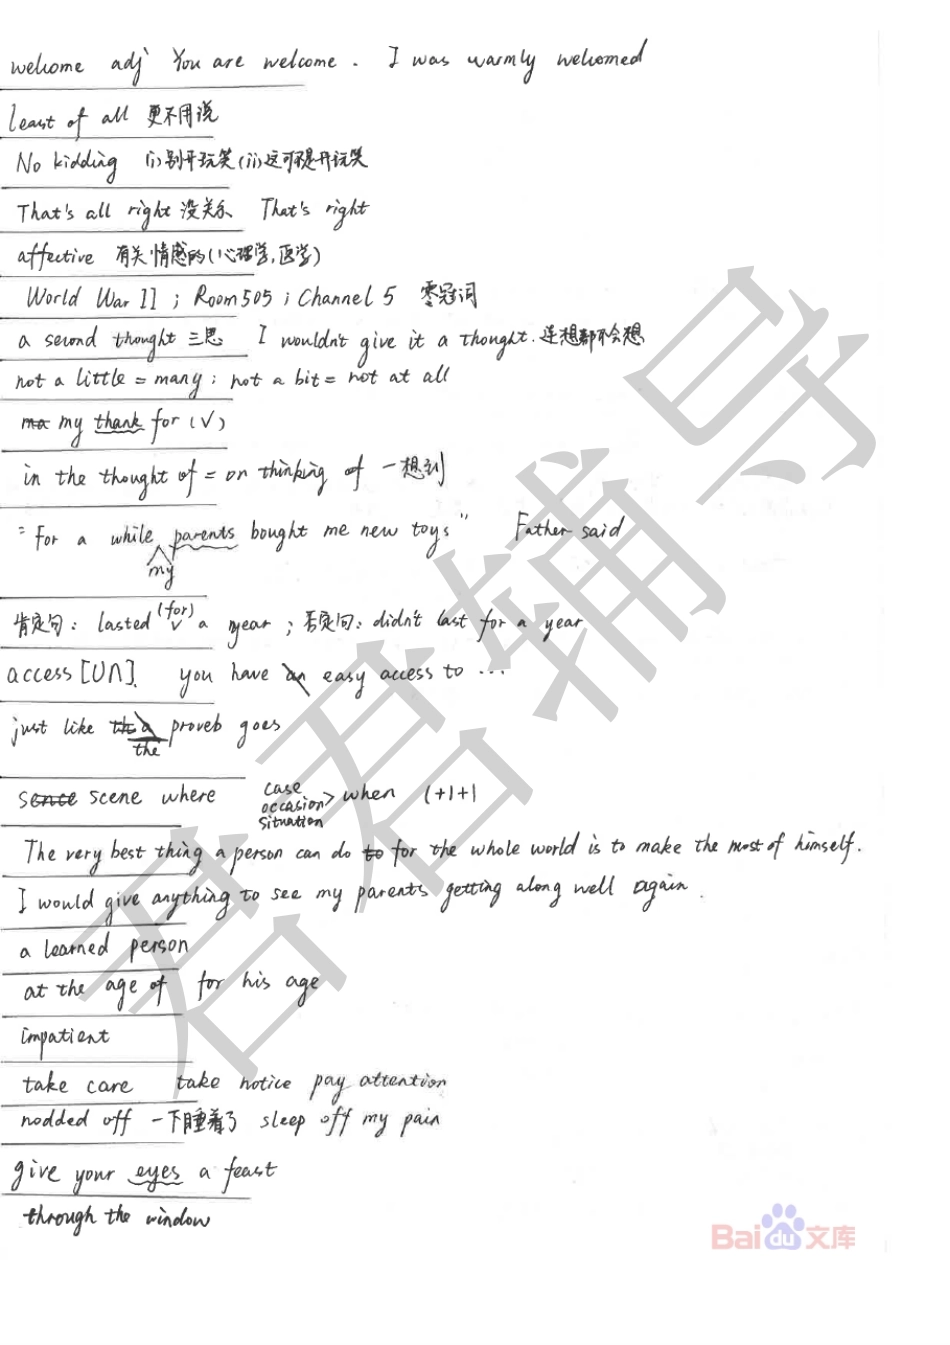 welcome adj You are welcome. I was warmly welcomed
least of all 更不用说
No kidding (i)别开玩笑(ii)这可不是开玩笑
That's all right 没关系 That's right
affective 有关情感的(心理学,医学)
World War II ; Room 505 ; Channel 5 零冠词
a second thought 三思 I wouldn't give it a thought. 连想都不会想
not a little = many ; not a bit = not at all
ma my thank for (√)
in the thought of = on thinking of 一想到
"For a while parents bought me new toys" Father said
my
肯定句: lasted (for) a year ; 否定句: didn't last for a year
access [UN]. you have an easy access to ...
just like the a proveb goes
the
scence scene where case occasion situation > when (+1+1
The very best thing a person can do to for the whole world is to make the most of himself.
I would give anything to see my parents getting along well again.
a learned person
at the age of for his age
impatient
take care take notice pay attention
nodded off 一下睡着了 sleep off my pain
give your eyes a feast
through the window
君君辅导
Baidu文库